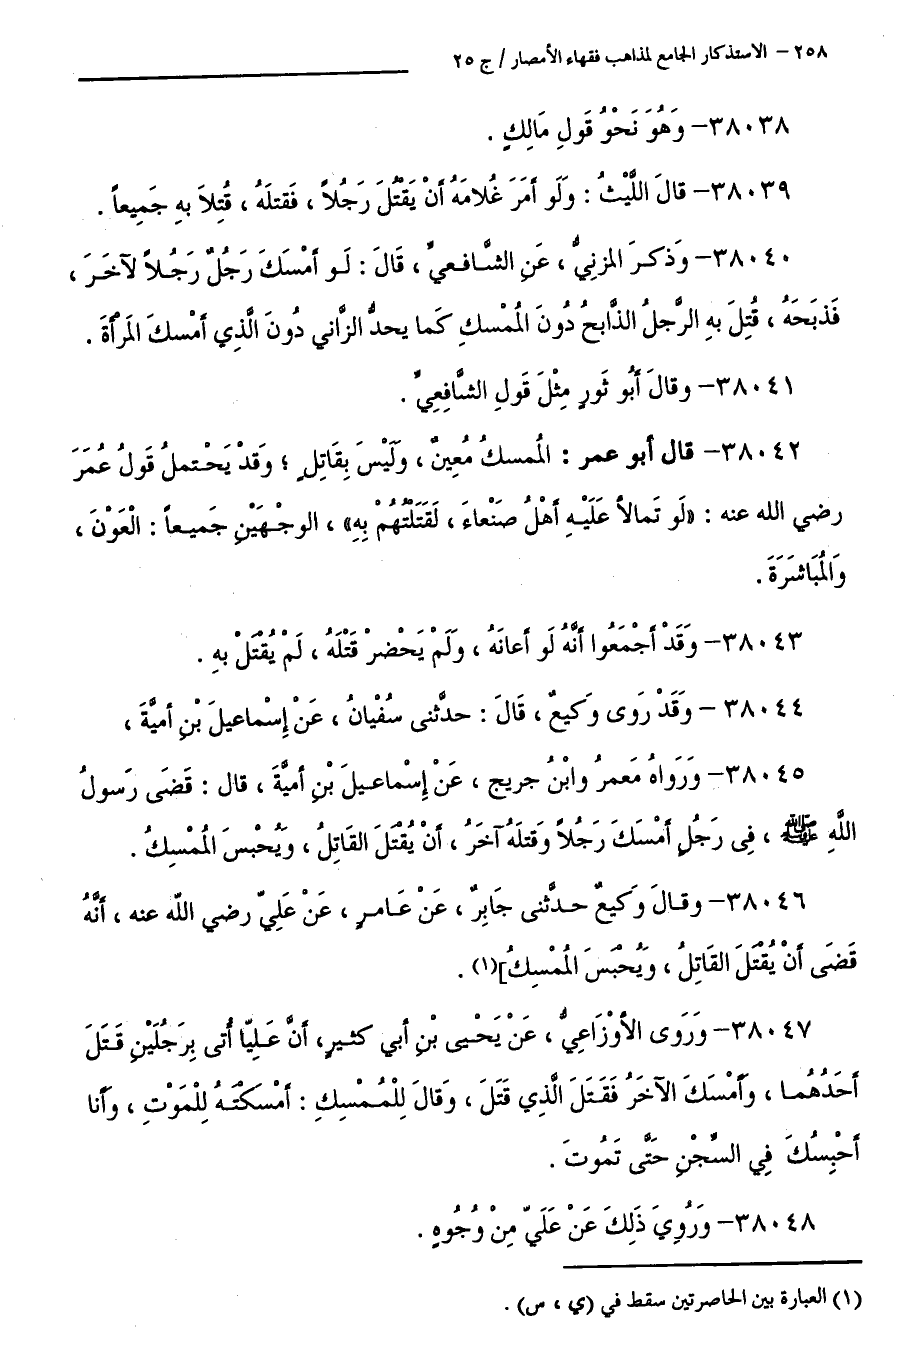 ٢٥٨ – الاستذكار الجامع لمذاهب فقهاء الأمصار / ج ٢٥
٣٨٠٣٨– وَهُوَ نَحْوُ قَولِ مَالِكٍ .
٣٨٠٣٩– قالَ اللَّيْثُ : وَلَو أمَرَ غُلامَهُ أنْ يَقْتُلَ رَجُلاً ، فَقتلَهُ ، قُتِلاَ بهِ جَميعاً .
٣٨٠٤٠– وَذكرَ المزنِيُّ ، عَنِ الشَّافعيِّ ، قَالَ : لَو أمْسَكَ رَجُلٌ رَجُلاً لآخَرَ ،
فَذبَحَهُ ، قُتِلَ بهِ الرَّجلُ الذَّابحُ دُونَ المُمْسكِ كَما يحدُّ الزَّاني دُونَ الَّذي أمْسكَ المَرأةَ .
٣٨٠٤١– وقالَ أَبُو ثَورٍ مِثْلَ قَولِ الشَّافِعِيِّ .
٣٨٠٤٢– قال أبو عمر : المُمسكُ مُعينٌ ، وَلَيْسَ بِقَاتلٍ ؛ وقَدْ يَحْتملُ قَولُ عُمَرَ
رضي الله عنه : «لَو تَمالأَ عَلَيْهِ أهْلُ صَنْعاءَ ، لَقَتَلْتُهُمْ بِهِ» ، الوجْهَيْنِ جَميعاً : الْعَوْنَ ،
وَالمُبَاشَرَةَ .
٣٨٠٤٣– وَقَدْ أجْمَعُوا أنَّهُ لَو أعانَهُ ، وَلَمْ يَحْضرْ قَتْلَهُ ، لَمْ يُقْتَلْ بهِ .
٣٨٠٤٤ – وَقَدْ رَوى وَكيعٌ ، قَالَ : حدثَّنى سفْيانُ ، عَنْ إسْماعيلَ بْنِ أميَّةَ ،
٣٨٠٤٥– وَرَوَاهُ مَعمرٌ وابْنُ جريج ، عَنْ إسْماعيلَ بْنِ أميَّةَ ، قال : قَضَى رَسولُ
اللَّهِ ﷺ ، فِى رَجُلٍ أمْسَكَ رَجُلاً وَقتلَهُ آخَرُ ، أنْ يُقْتَلَ القَاتلُ ، ويَُحْبسَ المُمْسِكُ .
٣٨٠٤٦– وقالَ وَكيعٌ حدثَّنى جَابِرٌ ، عَنْ عَامرٍ ، عَنْ عَلِيّ رضي اللّه عنه ، أنَّهُ
قَضَى أنْ يُقْتَلَ القَاتِلُ ، ويَُحْبَسَ المُمْسِكُ](١) .
٣٨٠٤٧– وَرَوى الأوْزَاعِيُّ ، عَنْ يَحْيى بْنِ أبي كثيرٍ، أنَّ عَليّا أُتى بِرَجُلَيْنِ قَتَلَ
أحَدُهُما ، وَأمْسَكَ الآخَرُ فَقَتلَ الَّذي قَتَلَ ، وَقَالَ لِلْمُمْسِكِ : أمْسَكْتَهُ لِلْمَوْتِ ، وَأنا
أحْبِسُكَ فِي السِّجْنِ حَتَّى تَمُوتَ .
٣٨٠٤٨– وَرُوِيَ ذَلِكَ عَنْ عَلَيّ مِنْ وُجُوهٍ .
(١) العبارة بين الحاصرتين سقط في (ي ، س) .